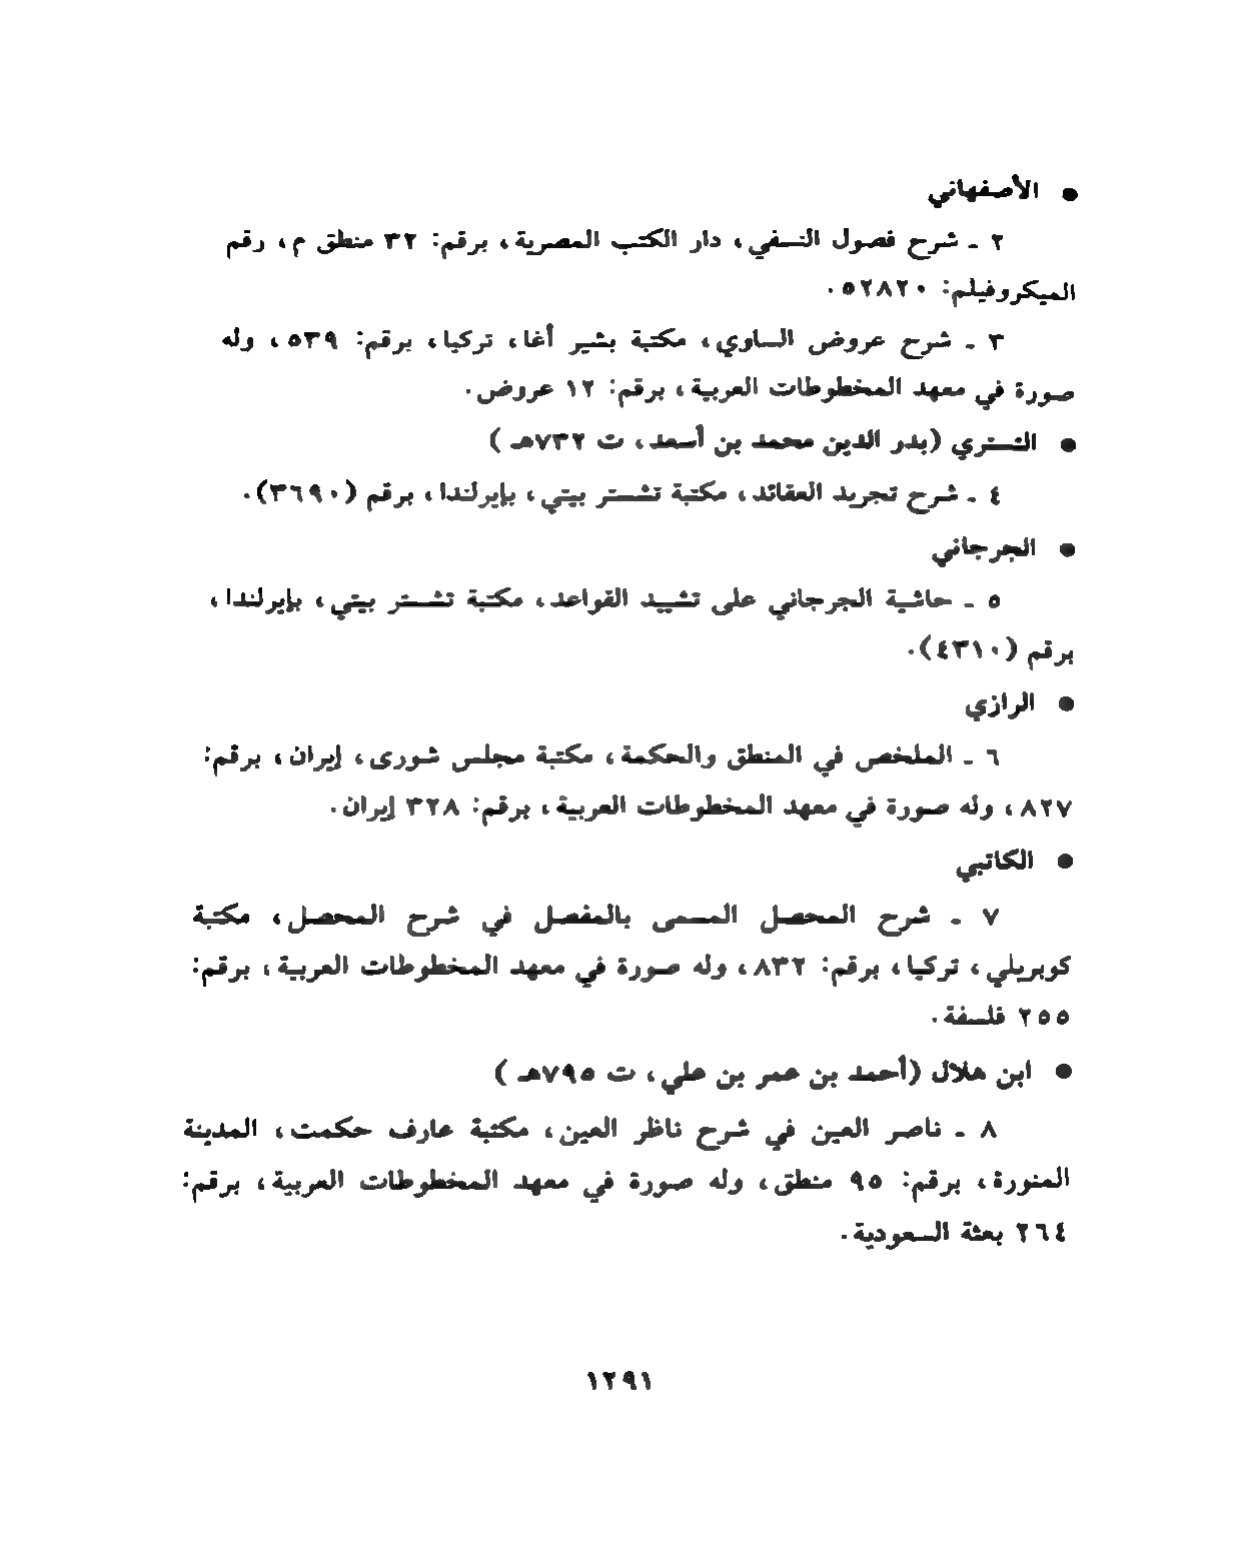 ● الأصفهاني
٢ ـ شرح فصول النسفي، دار الكتب المصرية، برقم: ٣٢ منطق م، رقم
الميكروفيلم: ٥٢٨٢٠.
٣ ـ شرح عروض الساوي، مكتبة بشير أغا، تركيا، برقم: ٥٣٩، وله
صورة في معهد المخطوطات العربية، برقم: ١٢ عروض.
● التستري (بدر الدين محمد بن أسعد، ت ٧٣٢هـ)
٤ ـ شرح تجريد العقائد، مكتبة تشستر بيتي، بإيرلندا، برقم (٣٦٩٠).
● الجرجاني
٥ ـ حاشية الجرجاني على تشييد القواعد، مكتبة تشستر بيتي، بإيرلندا،
برقم (٤٣١٠).
● الرازي
٦ ـ الملخص في المنطق والحكمة، مكتبة مجلس شورى، إيران، برقم:
٨٢٧، وله صورة في معهد المخطوطات العربية، برقم: ٣٢٨ إيران.
● الكاتبي
٧ ـ شرح المحصل المسمى بالمفصل في شرح المحصل، مكتبة
كوبريلي، تركيا، برقم: ٨٣٢، وله صورة في معهد المخطوطات العربية، برقم:
٢٥٥ فلسفة.
● ابن هلال (أحمد بن عمر بن علي، ت ٧٩٥هـ)
٨ ـ ناصر العين في شرح ناظر العين، مكتبة عارف حكمت، المدينة
المنورة، برقم: ٩٥ منطق، وله صورة في معهد المخطوطات العربية، برقم:
٢٦٤ بعثة السعودية.
١٢٩١